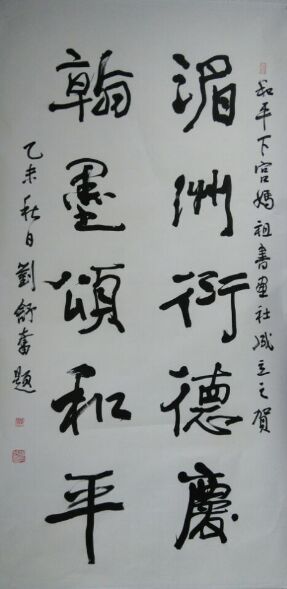 和平下宫媽祖書画社成立之賀
湄洲衍德慶
翰墨頌和平
乙未秋日劉舒奮題